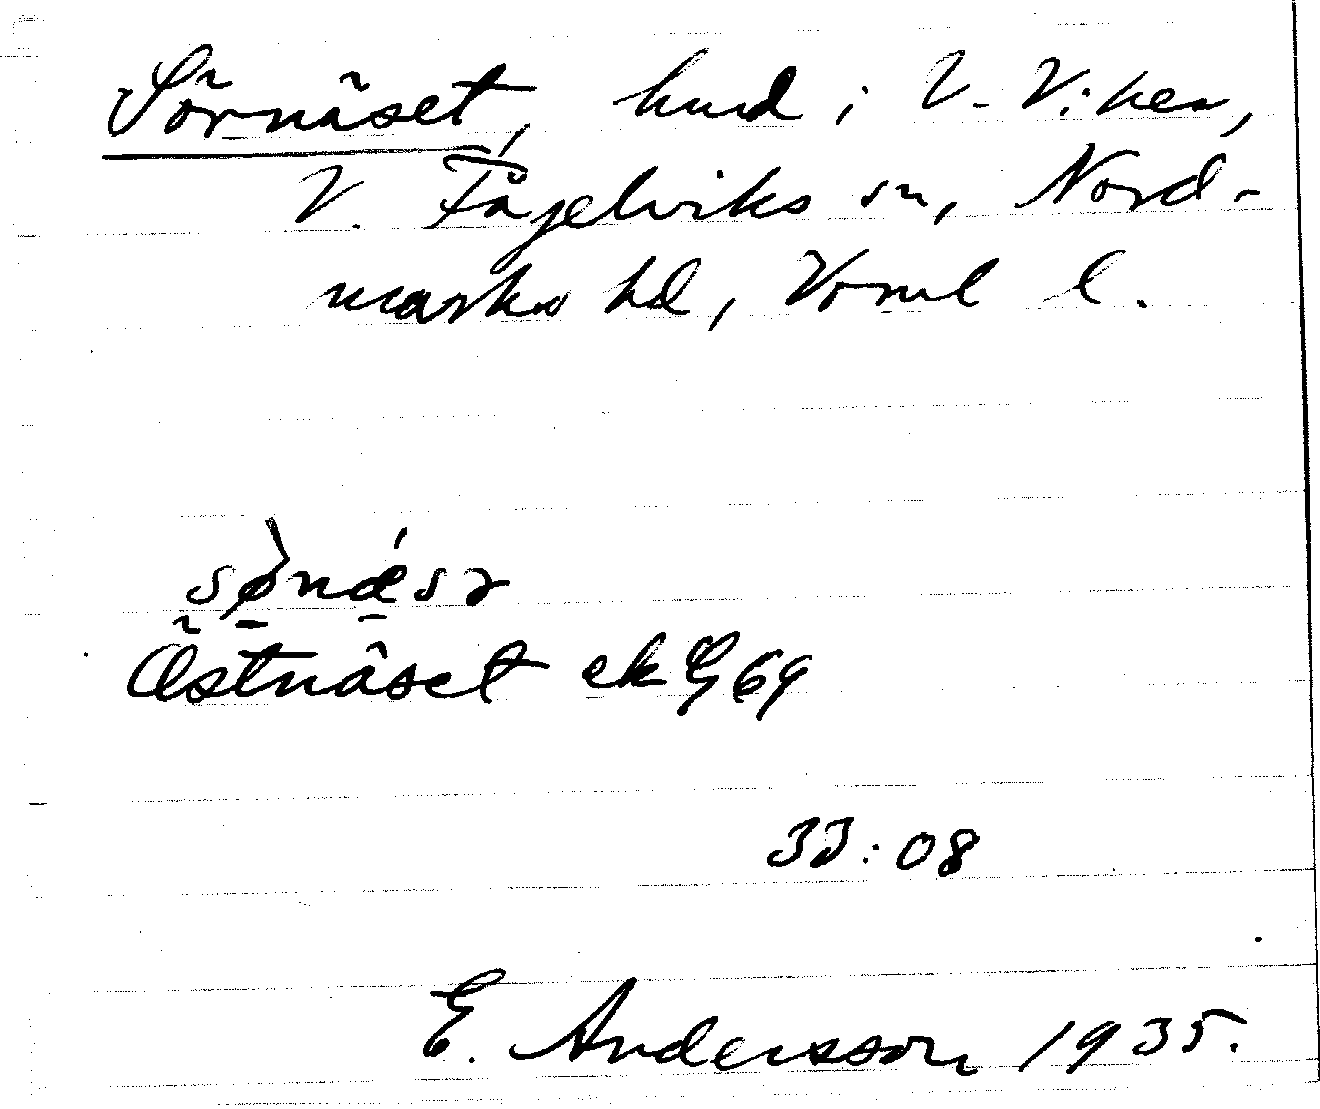 Sörnäset, hmd i V. Viken,
V. Fågelviks sn, Nord-
marks hd, Vrml l.
sø̀nǽsə
Östnäset ek G 69
33:08
E. Andersson 1935.